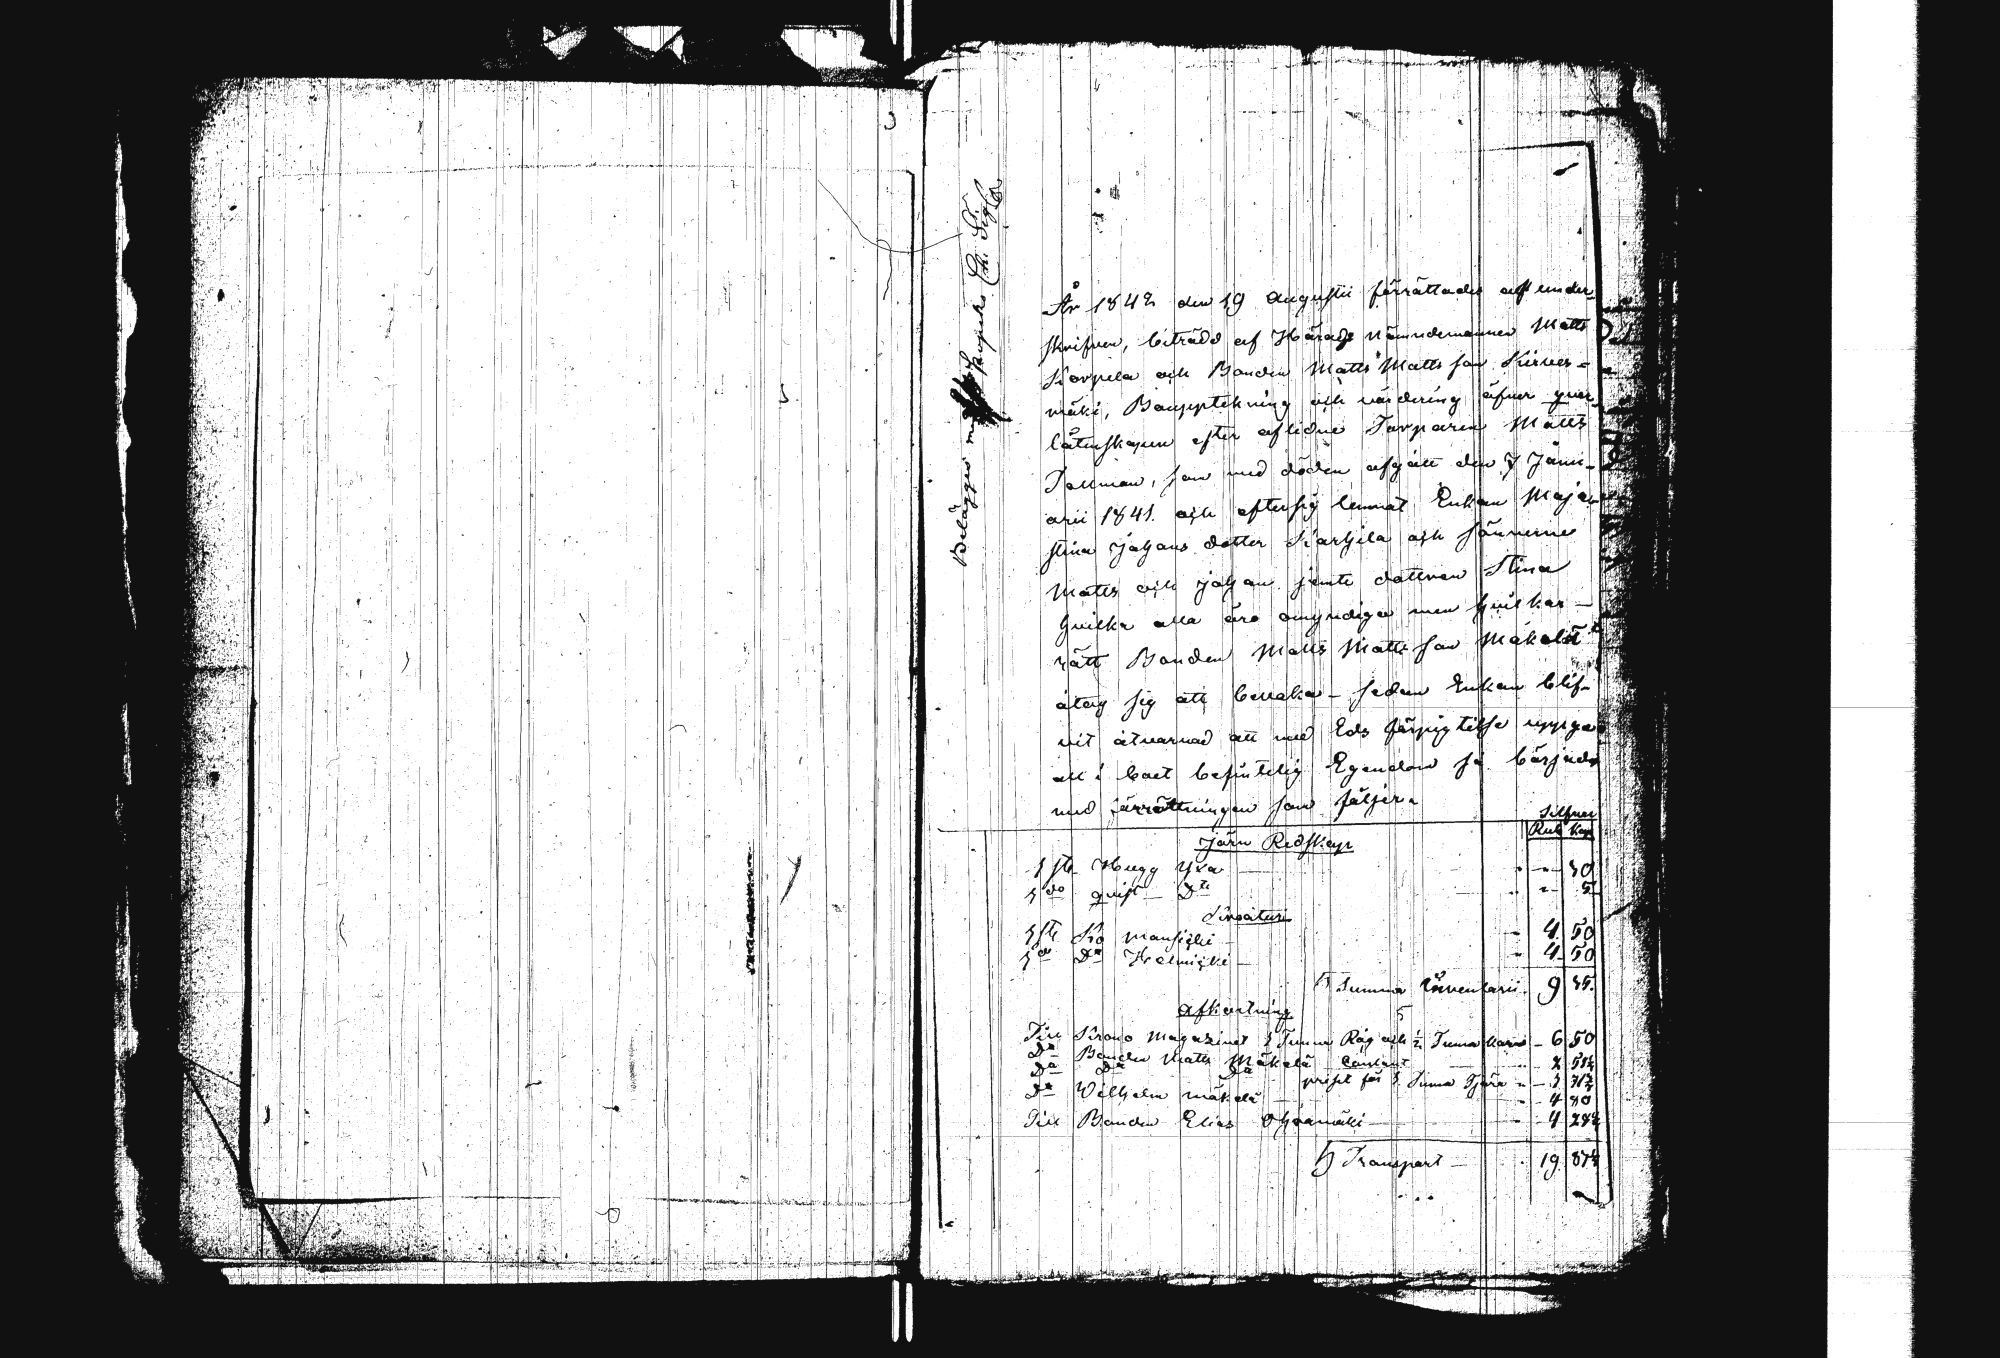 År 1842 den 19 Augustii förrättades af under-
skrifven, biträdd af Härads Nämndemannen Matts
Korpela och Bonden Matts Mattsson Kirves-
mäki, Bouppteckning och värdering öfver qvar-
låtenskapen efter aflidne Torparen Matts
som med döden afgått den 7 Janu-
arii 1841. och eftersig lemnat Enkan Maja
stina Johans dotter Karhila och Sönnerne
Matts och Johan jemte dottren Stina
hvilka alla äro omyndiga men hvilkas
rätt Bonden Matts Mattsson Mäkelä
åtog sig att bevaka – sedan Enkan blif-
vit åtvarnad att med Eds förpligtelse uppge
all i boet befintelig Egendom så börjades
med förrättningen som följer.
Silfver
Rub Kop
Järn Redskap
1 st. Hugg Yxa " " 30
1 do qvist Do " " 5
Kreatur
1 st. Ko Mansicki " 4. 50
1 do Do Helmicki " 4. 50
Summa Inventarii. 9 35.
Afkortning
Till Krono Magazinet 1 Tunna Råg och ½ Tunna korn 6 50
Do Bonden Matts Mäkelä Contant
Do Do Do för 1 Tunna Tjära
Do Wilhelm Mäkelä 4 80
Till Bonden Elias 4 28½
Transport 19. 87½
Belägges med Kopeks Ch. Sigl.